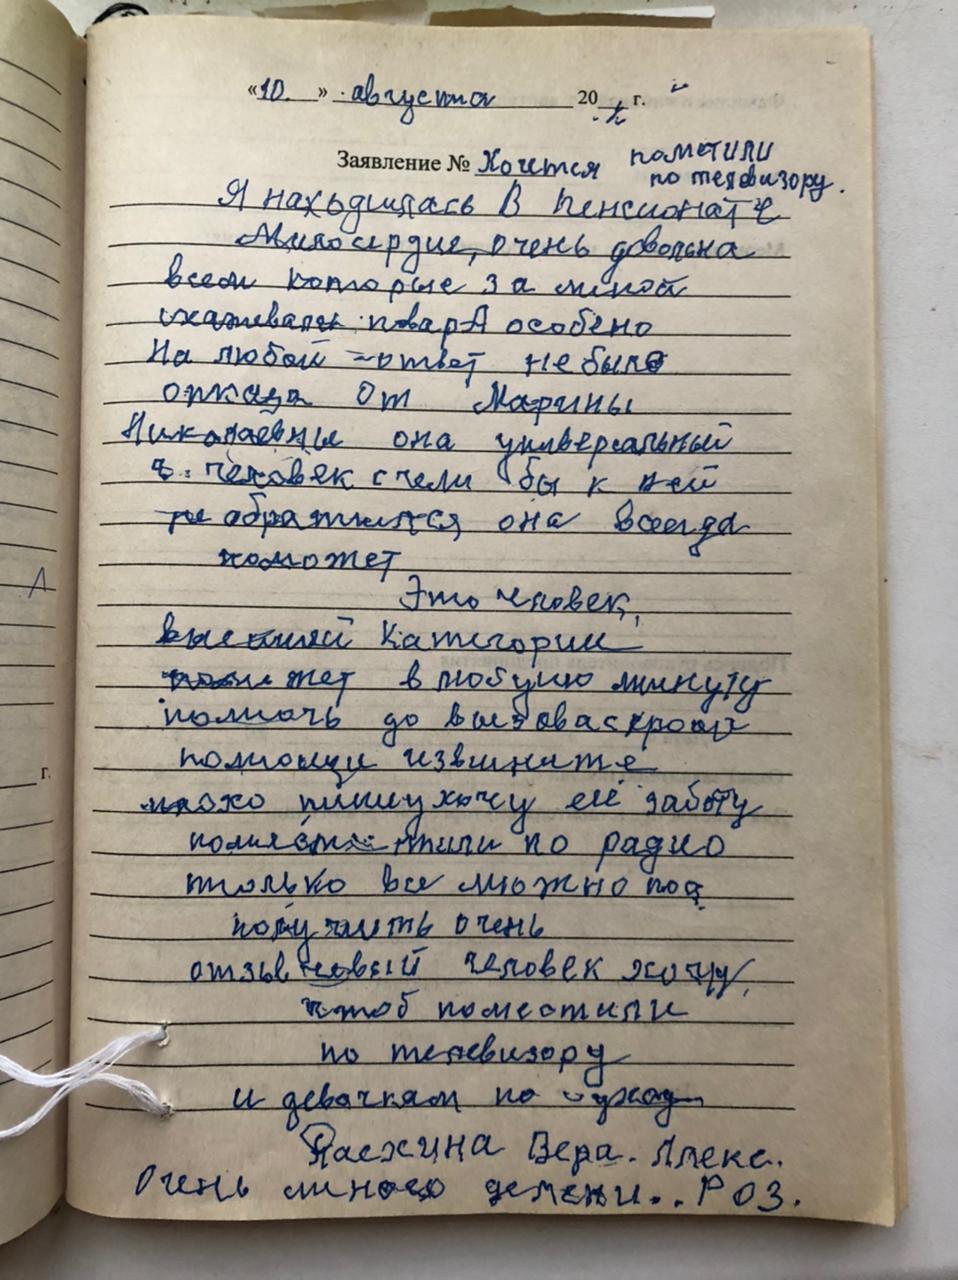 «10.» августа 20 г.
Заявление № Хочется пометили
по телевизору.
Я находилась В пенсионате
Милосердие, очень довольна
всем которые за мной
ухаживали повара особено
На любой ответ не было
отказа От Марины
Николаевны она универсальный
человек с чем бы к ней
не обратился она всегда
поможет
Это человек,
высшей категории
может в любую минуту
помочь до вызова скрой
помощи извините
плохо пишу хочу её работу
по радио
только все можно
получить очень
отзывчевый человек хочу,
чтоб поместили
по телевизору
и девачкам по уход
Расхина Вера. Алекс.
Очень много демени.. РОЗ.
г.